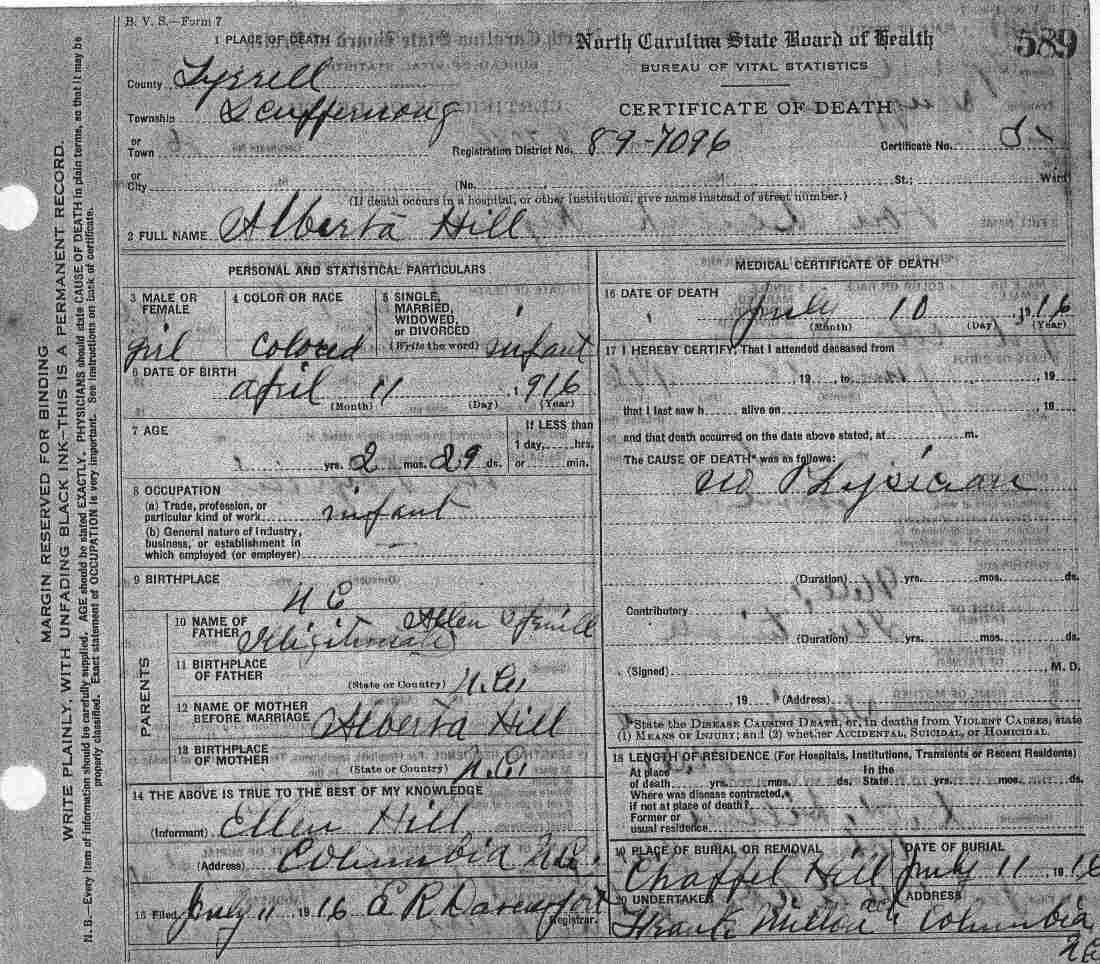 B. V. S.—Form 7
1 PLACE OF DEATH
North Carolina State Board of Health
589
BUREAU OF VITAL STATISTICS
County Tyrrell
CERTIFICATE OF DEATH
Township Scuppernong
or Town
Registration District No. 89-7096
Certificate No.
or City
(No. St.; Ward)
(If death occurs in a hospital, or other institution, give name instead of street number.)
2 FULL NAME Alberta Hill
PERSONAL AND STATISTICAL PARTICULARS
3 MALE OR FEMALE
girl
4 COLOR OR RACE
Colored
5 SINGLE, MARRIED, WIDOWED, or DIVORCED
(Write the word) infant
6 DATE OF BIRTH
april 11, 1916
(Month) (Day) (Year)
7 AGE
yrs. 2 mos. 29 ds.
If LESS than
1 day, hrs.
or min.
8 OCCUPATION
(a) Trade, profession, or
particular kind of work infant
(b) General nature of industry,
business, or establishment in
which employed (or employer)
9 BIRTHPLACE
N C
PARENTS
10 NAME OF FATHER
Illigitimate
Allen
11 BIRTHPLACE OF FATHER
(State or Country) N.C.
12 NAME OF MOTHER BEFORE MARRIAGE Alberta Hill
13 BIRTHPLACE OF MOTHER
(State or Country) N.C.
14 THE ABOVE IS TRUE TO THE BEST OF MY KNOWLEDGE
(Informant) Ellen Hill
(Address) Columbia N.C.
15 Filed July 11 1916 E R Davenport
Registrar.
MEDICAL CERTIFICATE OF DEATH
16 DATE OF DEATH
July 10 1916
(Month) (Day) (Year)
17 I HEREBY CERTIFY, That I attended deceased from
, 19 , to , 19
that I last saw h alive on , 19
and that death occurred on the date above stated, at m.
The CAUSE OF DEATH* was as follows:
no Physician
(Duration) yrs. mos. ds.
Contributory
(Duration) yrs. mos. ds.
(Signed) M. D.
, 19 (Address)
*State the DISEASE CAUSING DEATH, or, in deaths from VIOLENT CAUSES, state
(1) MEANS OF INJURY; and (2) whether ACCIDENTAL, SUICIDAL, or HOMICIDAL.
18 LENGTH OF RESIDENCE (For Hospitals, Institutions, Transients or Recent Residents)
At place of death yrs. mos. ds. In the State yrs. mos. ds.
Where was disease contracted,
if not at place of death?
Former or
usual residence
19 PLACE OF BURIAL OR REMOVAL
Chappel Hill
DATE OF BURIAL
July 11, 1916
20 UNDERTAKER
Frank
ADDRESS
Columbia
N C
MARGIN RESERVED FOR BINDING
WRITE PLAINLY, WITH UNFADING BLACK INK—THIS IS A PERMANENT RECORD.
N. B.—Every item of information should be carefully supplied. AGE should be stated EXACTLY. PHYSICIANS should state CAUSE OF DEATH in plain terms, so that it may be
properly classified. Exact statement of OCCUPATION is very important. See instructions on back of certificate.